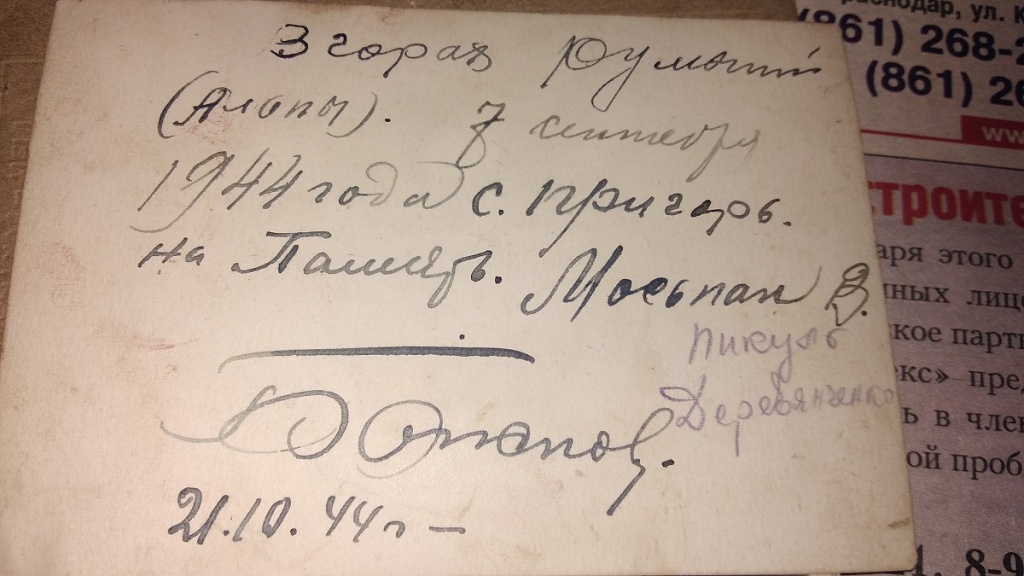 В горах Румынии
(Альпы). 7 сентября
1944 года с. Григорь.
на Память. Мосьпан В.
Пикуль
Деревянченко
21.10.44 г –
раснодар, ул. К
861) 268-2
(861) 26
ww
строите
аря этого
нных лице
ское парти
екс» пред
ь в член
ой проб
8-9